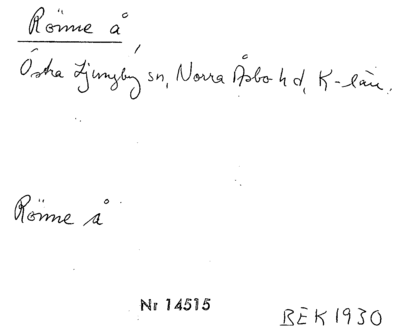 Rönne å
Östra Ljungby sn, Norra Åsbo hd, K-län.
Rönne å
Nr 14515
BEK 1930